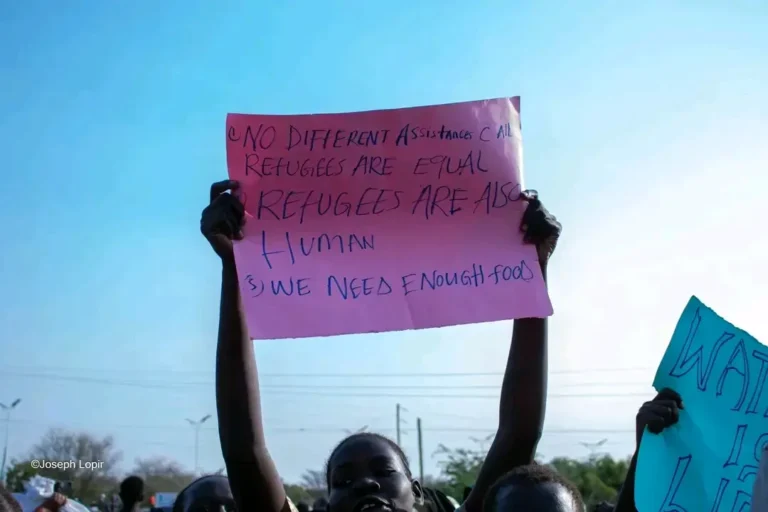 NO DIFFERENT Assistances C All
REFUGEES ARE EQUAL
REFUGEES ARE Also
HUMAN
3) WE NEED ENOUGH FOOD
WAT
IS
LI
©Joseph Lopir